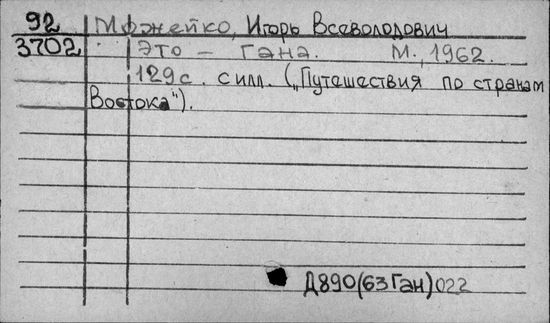 92 Можейко, Игорь Всеволодович
3702 Это – Гана. М., 1962.
129с. силл. („Путешествия по странам
Востока").
Д890(63Ган)022